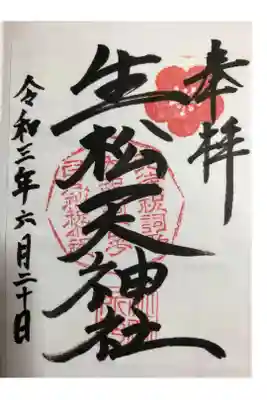 奉拝
生松天神社
令和三年六月二十日